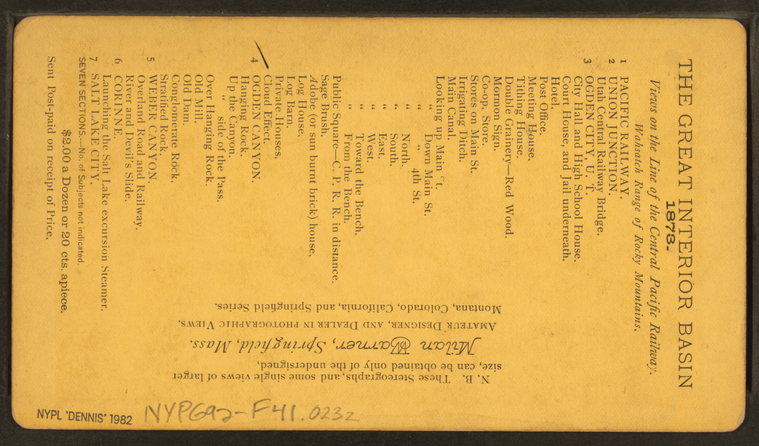 THE GREAT INTERIOR BASIN
1873-
Views on the Line of the Central Pacific Railway.
Wahsatch Range of Rocky Mountains.
1 PACIFIC RAILWAY.
2 UNION JUNCTION.
Utah Central Railway Bridge.
3 OGDEN CITY, U. T.
City Hall and High School House.
Court House, and Jail underneath.
Hotel.
Post Office.
Meeting House.
Tithing House.
Double Grainery—Red Wood.
Mormon Sign.
Co-op. Store.
Stores on Main St.
Irrigating Ditch.
Main Canal.
Looking up Main St.
" Down Main St.
" " 4th St.
" North.
" South.
" East.
" West.
" Toward the Bench.
" From the Bench.
Public Square—C. P. R. R. in distance.
Sage Brush.
Adobe (or sun burnt brick) house.
Log House.
Log Barn.
Private Houses.
Cloud Effect.
4 OGDEN CANYON.
Hanging Rock.
Up the Canyon.
" side of the Pass.
Over Hanging Rock.
Old Mill.
Old Dam.
Conglomerate Rock.
Stratified Rock.
5 WEBER CANYON.
Overland Road and Railway.
River and Devil's Slide.
6 CORINNE.
Launching the Salt Lake excursion Steamer.
7 SALT LAKE CITY.
SEVEN SECTIONS.—No. of Subjects not indicated.
$2.00 a Dozen or 20 cts. apiece.
Sent Post-paid on receipt of Price.
N. B. These Stereographs, and some single views of larger
size, can be obtained only of the undersigned,
Milan Warner, Springfield, Mass.
AMATEUR DESIGNER, AND DEALER IN PHOTOGRAPHIC VIEWS,
Montana, Colorado, California, and Springfield Series.
NYPL 'DENNIS' 1982
NYPG92-F41.0232